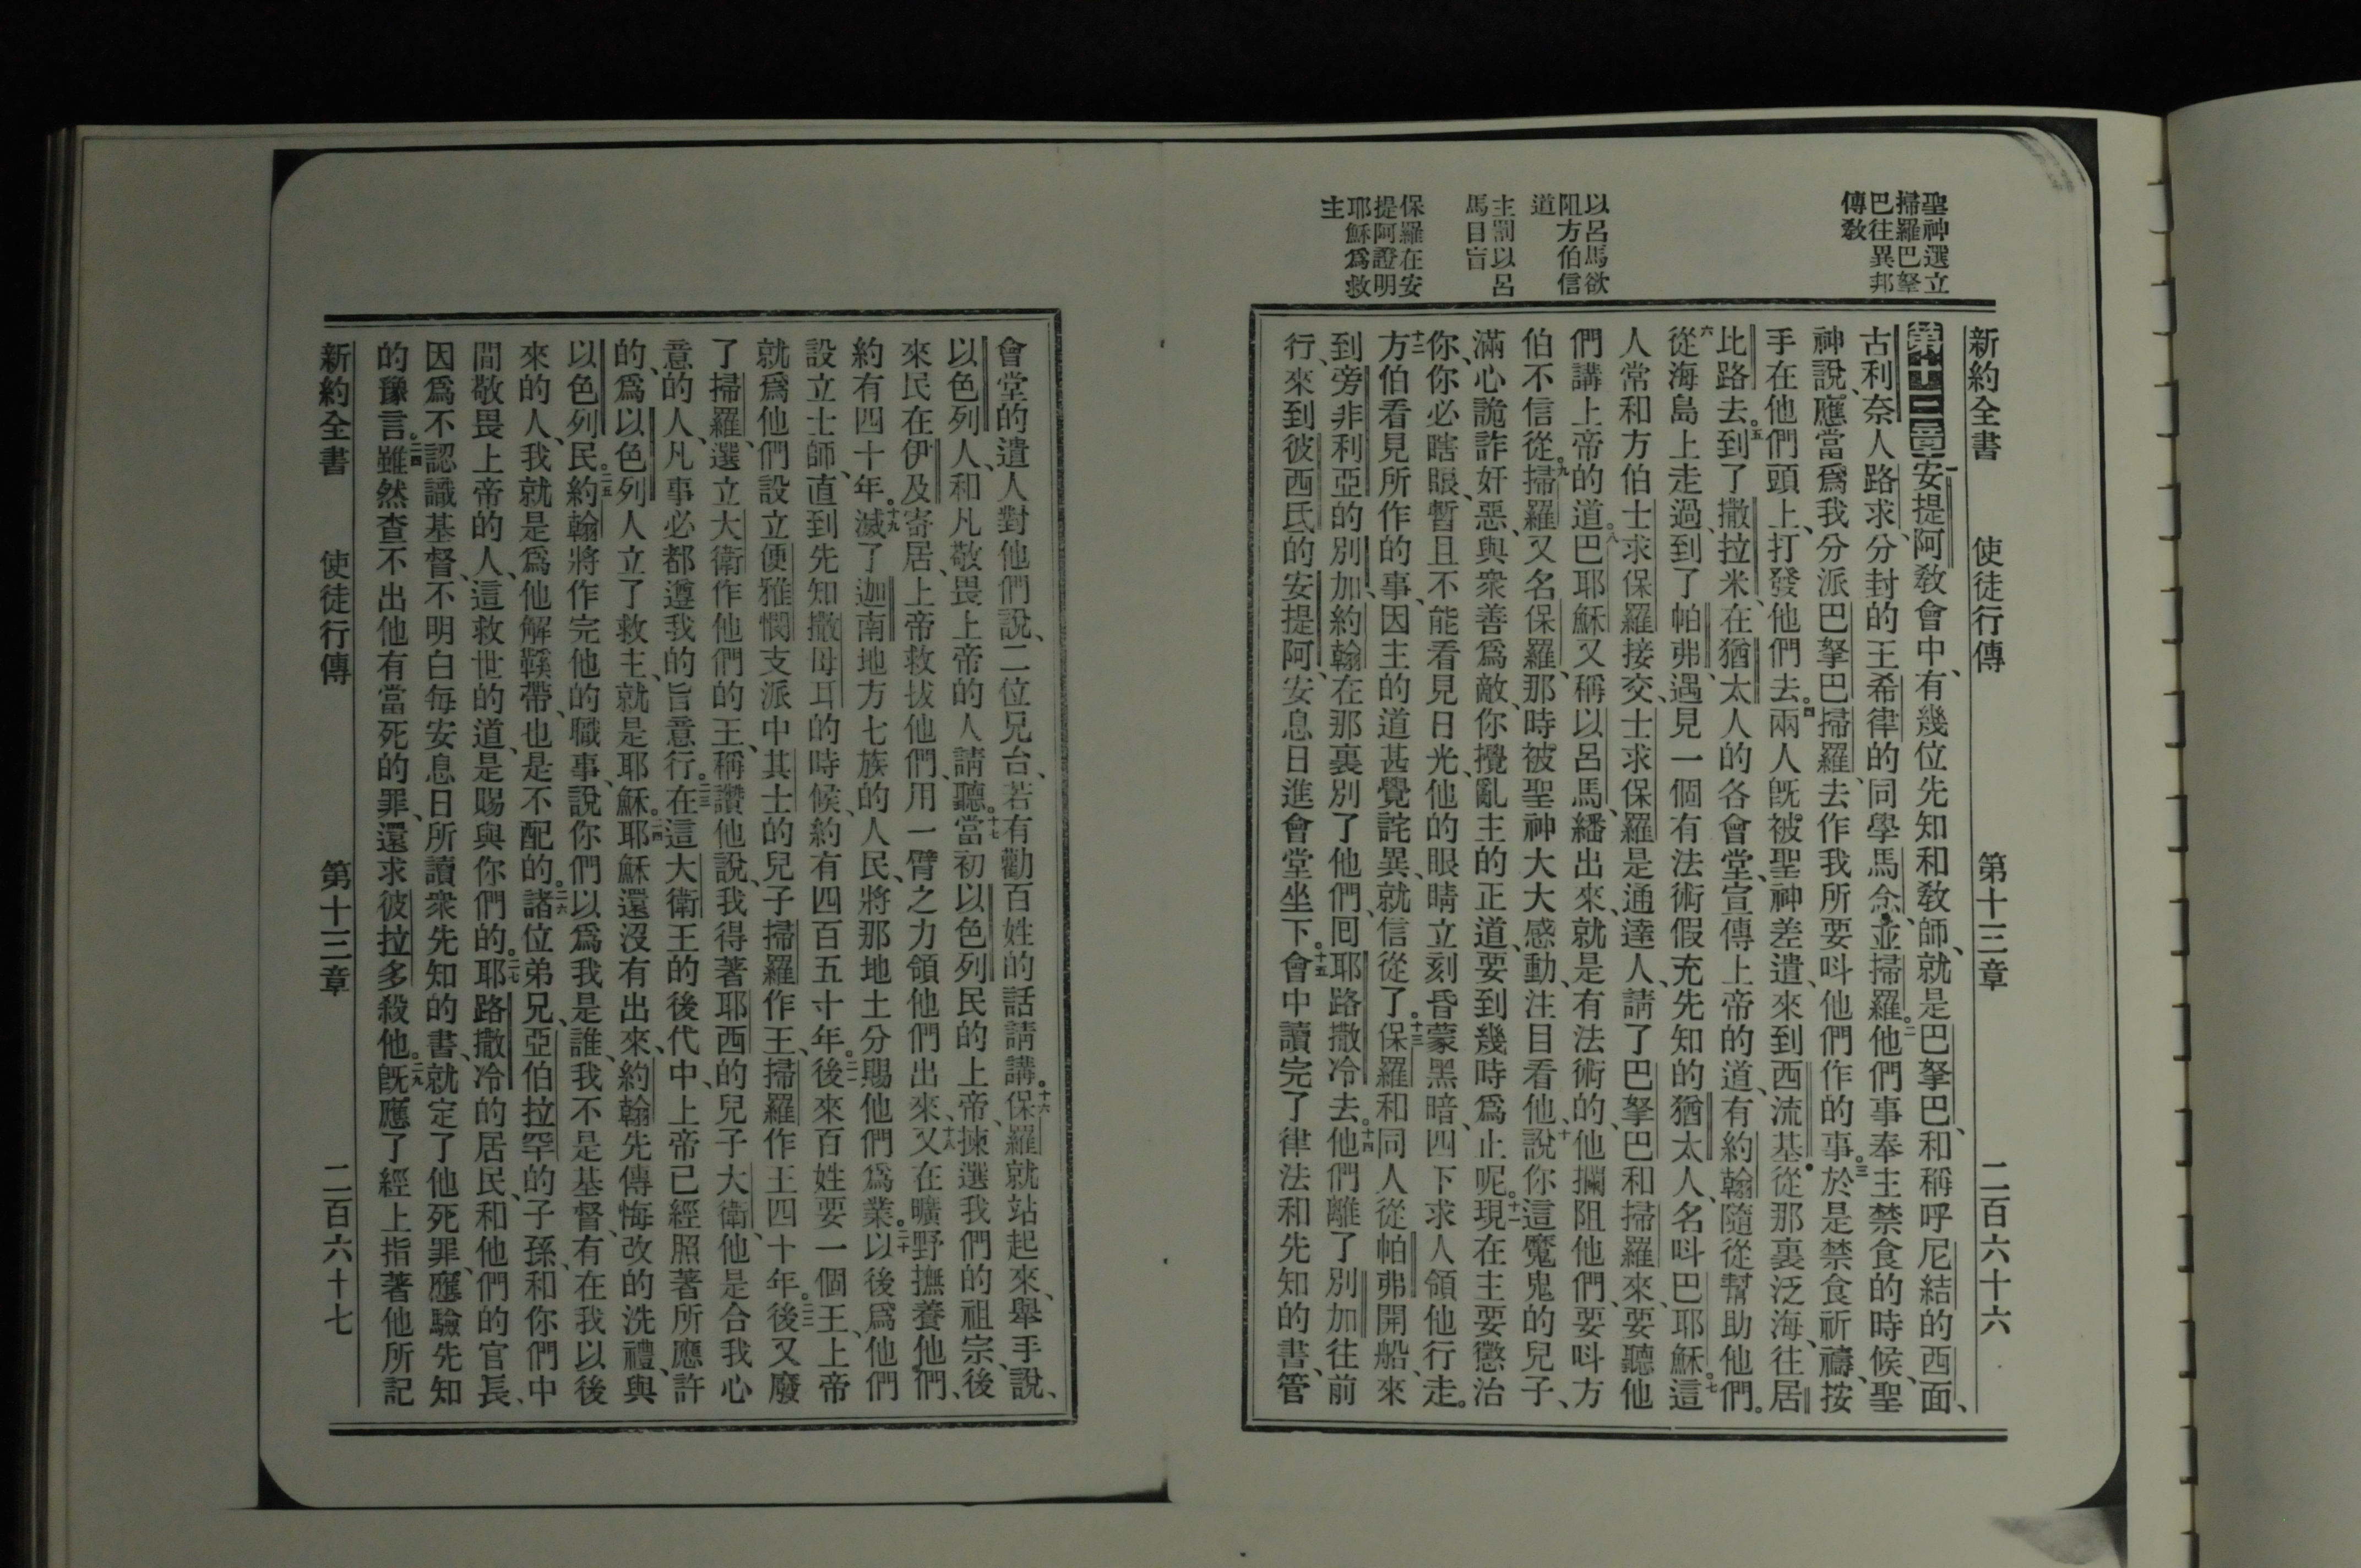 聖神選立
掃羅巴拏
巴往異邦
傳敎
以呂馬欲
阻方伯信
道
主罰以呂
馬目盲
保羅在安
提阿證明
耶穌爲救
主
新約全書 使徒行傳 第十三章 二百六十六
第十三章 一安提阿敎會中、有幾位先知和敎師、就是巴拏巴、和稱呼尼結的西面、
古利奈人路求、分封的王希律的同學馬念、並掃羅。二他們事奉主禁食的時候、聖
神說、應當爲我分派巴拏巴掃羅、去作我所要呌他們作的事。三於是禁食祈禱、按
手在他們頭上、打發他們去。四兩人旣被聖神差遣、來到西流基。從那裏泛海、往居
比路去。五到了撒拉米、在猶太人的各會堂、宣傳上帝的道、有約翰隨從幫助他們。
六從海島上走過、到了帕弗、遇見一個有法術假充先知的猶太人、名呌巴耶穌。七這
人常和方伯士求保羅接交、士求保羅是通達人、請了巴拏巴和掃羅來、要聽他
們講上帝的道。八巴耶穌又稱以呂馬、繙出來、就是有法術的、他攔阻他們、要呌方
伯不信從。九掃羅、又名保羅、那時被聖神大大感動、注目看他、十說、你這魔鬼的兒子、
滿心詭詐奸惡、與衆善爲敵、你攪亂主的正道、要到幾時爲止呢。十一現在主要懲治
你、你必瞎眼、暫且不能看見日光、他的眼睛立刻昏蒙黑暗、四下求人領他行走。
十二方伯看見所作的事、因主的道甚覺詫異、就信從了。十三保羅和同人從帕弗開船、來
到旁非利亞的別加、約翰在那裏別了他們、囘耶路撒冷去。十四他們離了別加往前
行、來到彼西氏的安提阿、安息日進會堂坐下。十五會中讀完了律法和先知的書、管
會堂的遣人對他們說、二位兄台、若有勸百姓的話請講。十六保羅就站起來、舉手說、
以色列人、和凡敬畏上帝的人請聽。十七當初以色列民的上帝、揀選我們的祖宗、後
來民在伊及寄居、上帝救拔他們、用一臂之力領他們出來、十八又在曠野撫養他們、
約有四十年。十九滅了迦南地方七族的人民、將那地土分賜他們爲業。二十以後爲他們
設立士師、直到先知撒母耳的時候、約有四百五十年。二一後來百姓要一個王、上帝
就爲他們設立便雅憫支派中其士的兒子掃羅作王、掃羅作王四十年。二二後又廢
了掃羅、選立大衛作他們的王、稱讚他說、我得著耶西的兒子大衛、他是合我心
意的人、凡事必都遵我的旨意行。二三在這大衛王的後代中、上帝已經照著所應許
的、爲以色列人立了救主、就是耶穌。二四耶穌還沒有出來、約翰先傳悔改的洗禮、與
以色列民。二五約翰將作完他的職事、說、你們以爲我是誰、我不是基督、有在我以後
來的人、我就是爲他解鞵帶、也是不配的。二六諸位弟兄、亞伯拉罕的子孫、和你們中
間敬畏上帝的人、這救世的道、是賜與你們的。二七耶路撒冷的居民、和他們的官長、
因爲不認識基督、不明白每安息日所讀衆先知的書、就定了他死罪、應驗先知
的豫言。二八雖然查不出他有當死的罪、還求彼拉多殺他。二九旣應了經上指著他所記
新約全書 使徒行傳 第十三章 二百六十七